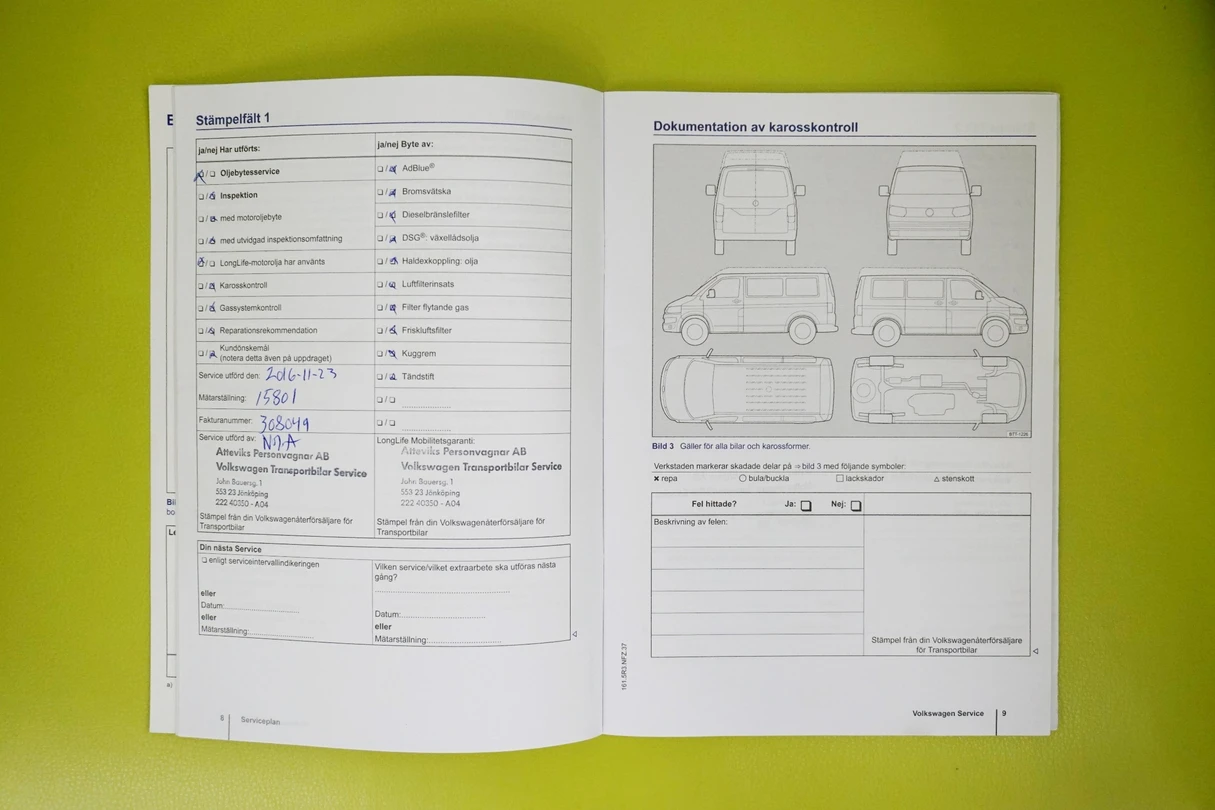 E
Stämpelfält 1
ja/nej Har utförts:
ja/nej Byte av:
Oljebytesservice
AdBlue®
Inspektion
Bromsvätska
med motoroljebyte
Dieselbränslefilter
med utvidgad inspektionsomfattning
DSG®: växellådsolja
LongLife-motorolja har använts
Haldexkoppling: olja
Karosskontroll
Luftfilterinsats
Gassystemkontroll
Filter flytande gas
Reparationsrekommendation
Friskluftsfilter
Kundönskemål
(notera detta även på uppdraget)
Kuggrem
Service utförd den: 2016-11-23
Tändstift
Mätarställning: 15801
Fakturanummer: 308049
Service utförd av:
LongLife Mobilitetsgaranti:
Atteviks Personvagnar AB
Volkswagen Transportbilar Service
John Bauersg. 1
553 23 Jönköping
222 40350 - A04
Stämpel från din Volkswagenåterförsäljare för
Transportbilar
Atteviks Personvagnar AB
Volkswagen Transportbilar Service
John Bauersg. 1
553 23 Jönköping
222 40350 - A04
Stämpel från din Volkswagenåterförsäljare för
Transportbilar
Din nästa Service
enligt serviceintervallindikeringen
eller
Datum:
eller
Mätarställning:
Vilken service/vilket extraarbete ska utföras nästa
gång?
Datum:
eller
Mätarställning:
Bil
bo
Le
a)
8 Serviceplan
Dokumentation av karosskontroll
Bild 3 Gäller för alla bilar och karossformer.
Verkstaden markerar skadade delar på ⇒ bild 3 med följande symboler:
repa
bula/buckla
lackskador
stenskott
Fel hittade? Ja: Nej:
Beskrivning av felen:
Stämpel från din Volkswagenåterförsäljare
för Transportbilar
161.5R3.NFZ.37
Volkswagen Service 9